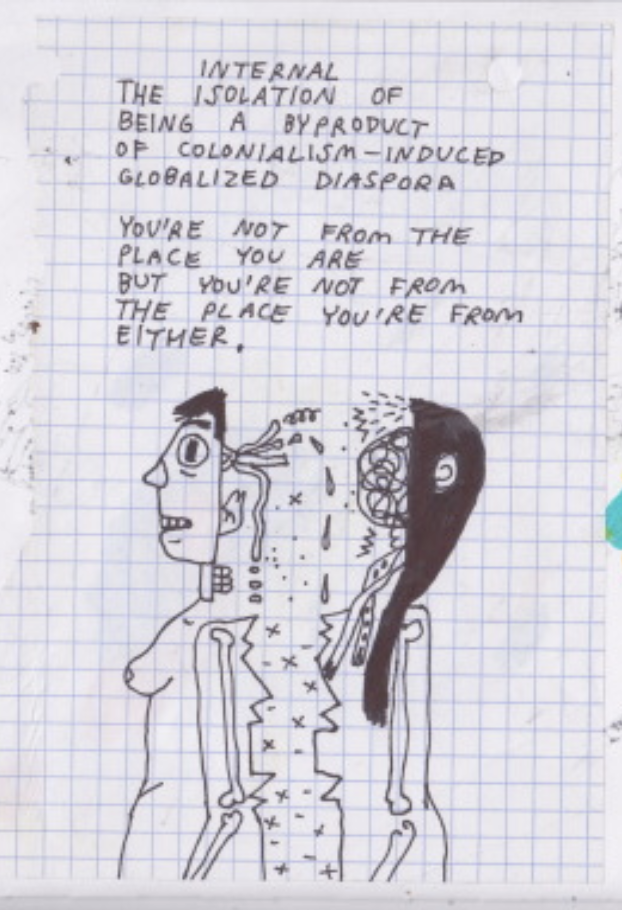 INTERNAL
THE ISOLATION OF
BEING A BYPRODUCT
OF COLONIALISM-INDUCED
GLOBALIZED DIASPORA
YOU'RE NOT FROM THE
PLACE YOU ARE
BUT YOU'RE NOT FROM
THE PLACE YOU'RE FROM
EITHER.